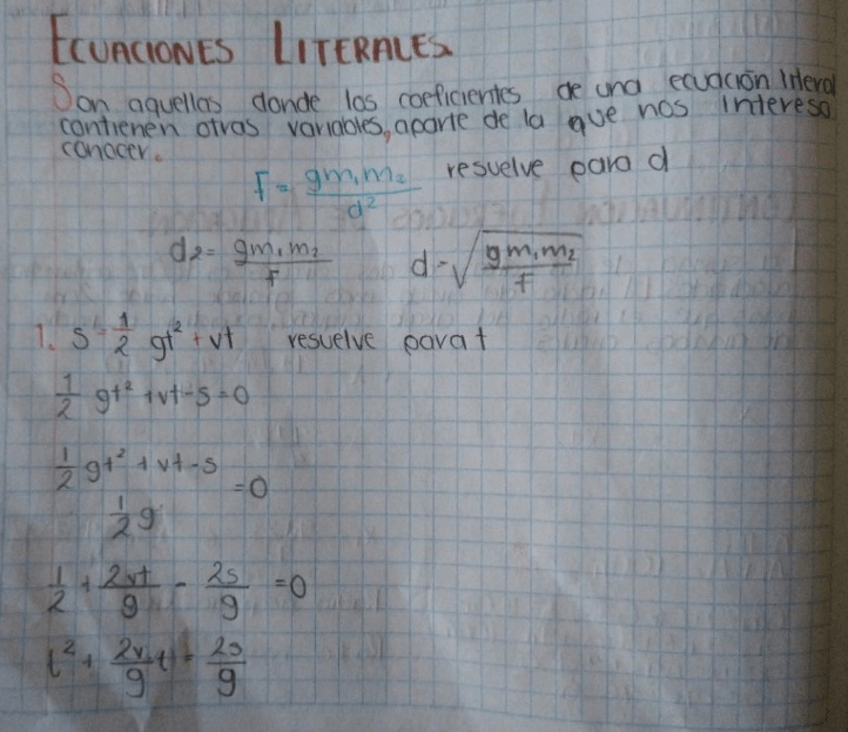 ECUACIONES LITERALES
Son aquellas donde los coeficientes de una ecuación literal
contienen otras variables, aparte de la que nos interesa
conocer.
F = gm₁m₂/d² resuelve para d
d2 = gm₁m₂/F d = √(gm₁m₂/F)
1. s = 1/2 gt² + vt resuelve para t
1/2 gt² + vt - s = 0
(1/2 gt² + vt - s)/(1/2 g) = 0
1/2 + 2vt/g - 2s/g = 0
t² + 2v/g t = 2s/g